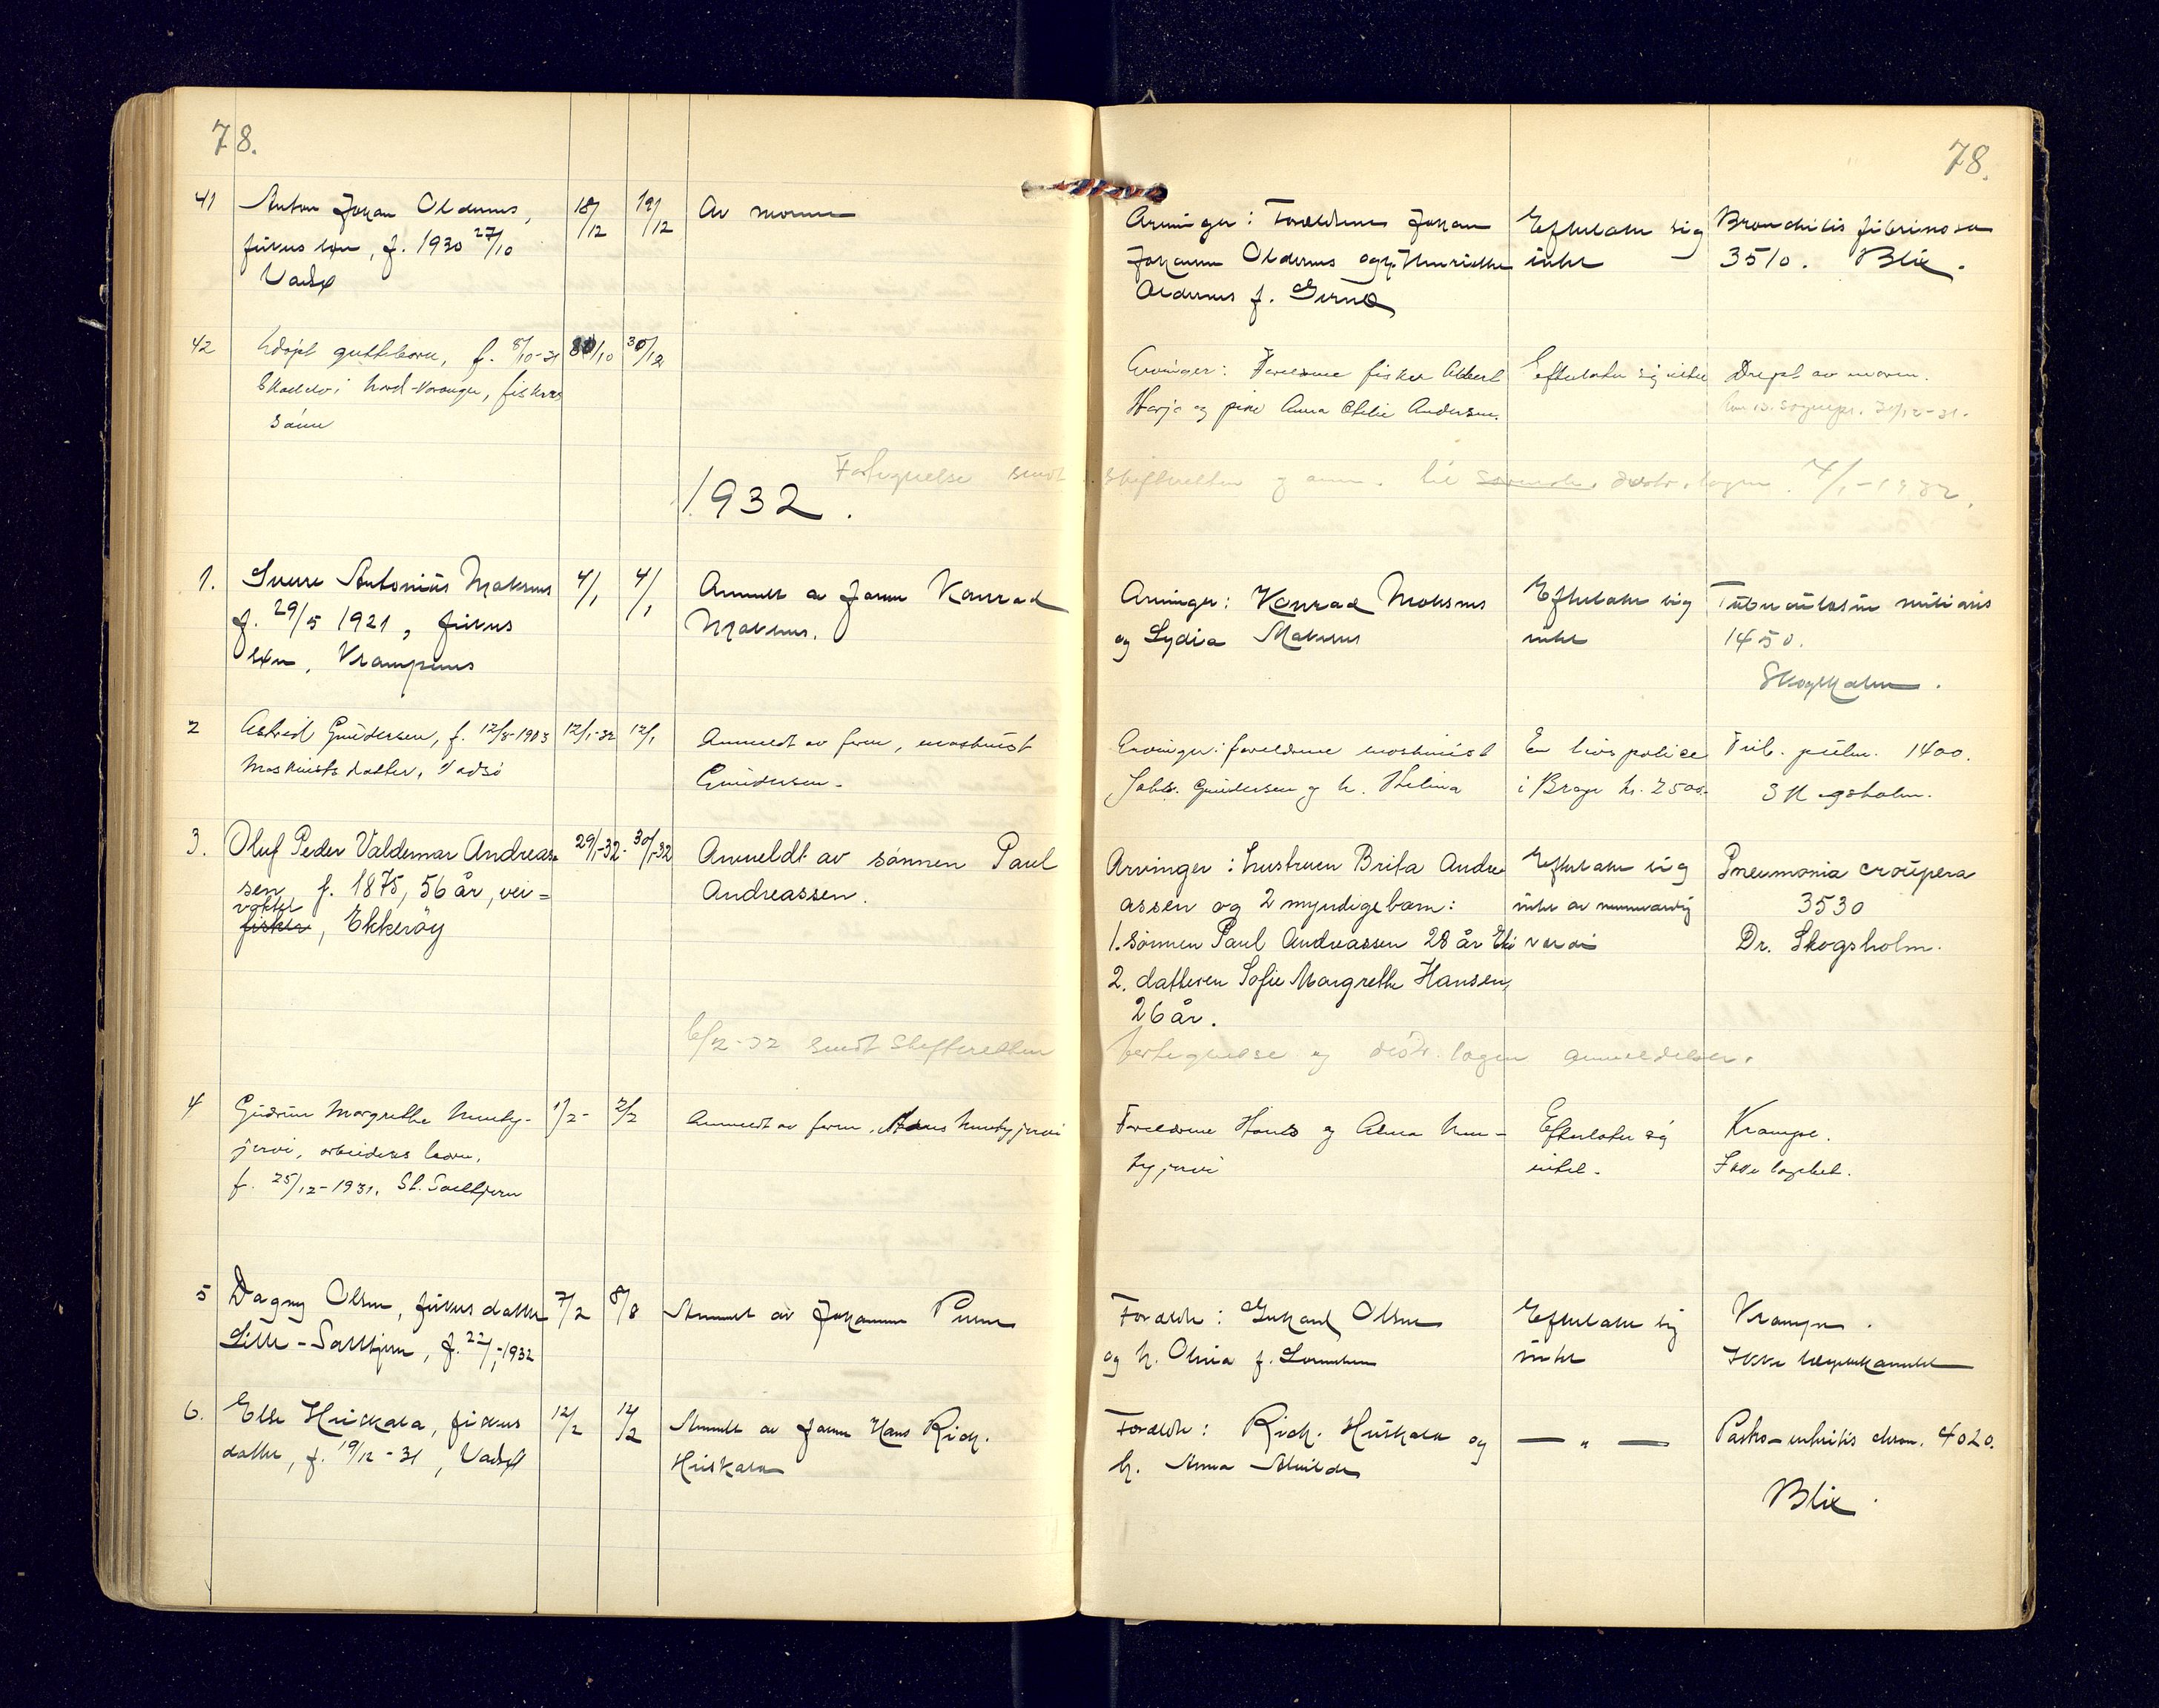 78.
78.
41 Anton Johan Oldernes, 18/12 19/12 Av moren
fiskers søn, f. 1930 27/10
Vadsø
Arvinger: Forældrene Johan
Johannes Oldernes og h. Henriette
Oldernes f.
Efterlater sig
intet
Bronchitis fibrinosa
3510. Blix.
42 Udøpt guttebarn, f. 8/10-31 30/12
i Nord-Varanger, fiskers
sønn
Arvinger: Foreldrene fisker Albert
Harjo og pike Anna Otelie Andersen.
Efterlater sig intet
Drept av moren.
sognepr. 30/12-31.
1932.
Fortegnelse sendt skifteretten og anm. til distr. lægen 4/1-1932.
1. Sverre Antonius Maksnes 4/1 4/1 Anmeldt av faren Konrad
f. 29/5 1921, fiskers Maksnes.
søn, Krampenes
Arvinger: Konrad Moksnes
og Lydia Maksnes
Efterlater sig
intet
Tuberculosis miliaris
1450.
Skogsholm.
2 Astrid Gundersen, f. 12/8-1903 12/1-32 12/1 Anmeldt av faren, maskinist
Maskinists datter, Vadsø Gundersen.
Arvinger: foreldrene maskinist
Johs. Gundersen og h. Helina
En livspolice
i Brage kr. 2500.-
Tub. pulm. 1400.
Skogsholm.
3. Oluf Peder Valdemar Andreas- 29/1-32. 30/1-32 Anmeldt av sønnen Paul
sen, f. 1875, 56 år, vei= Andreassen.
vokter
fisker, Ekkerøy
Arvinger: hustruen Brita Andre
assen og 2 myndige barn:
1. sønnen Paul Andreassen 28 år
2. datteren Sofie Margrethe Hansen,
26 år.
Efterlater sig
intet av nevneverdig
verdi
Pneumonia croupera
3530
Dr. Skogsholm.
6/2-32 sendt Skifteretten fortegnelse og distr. lægen anmeldelser.
4 Gudrun Margrethe 1/2- 2/2 Anmeldt av faren, Hans
jervi, arbeiders barn,
f. 25/12-1931. St. Salttjern
Foreldrene Hans og Alma
jervi
Efterlater sig
intet.
Krampe.
Ikke legehel.
5 Dagny Olsen, fiskers datter 7/2 8/8 Anmeldt av Johanne
Lille-Salttjern, f. 22/1-1932
Foreldre: Olsen
og h. Olivia f.
Efterlater sig
intet
Krampe.
Ikke lægebehandlet
6. Else Huskala, fiskers 12/2 14/2 Anmeldt av faren Hans Rich.
datter, f. 19/12-31, Vadsø Huskala
Foreldre: Rich. Huskala og
h. Anna Alvilde
— " —
enteritis chron. 4020.
Blix.